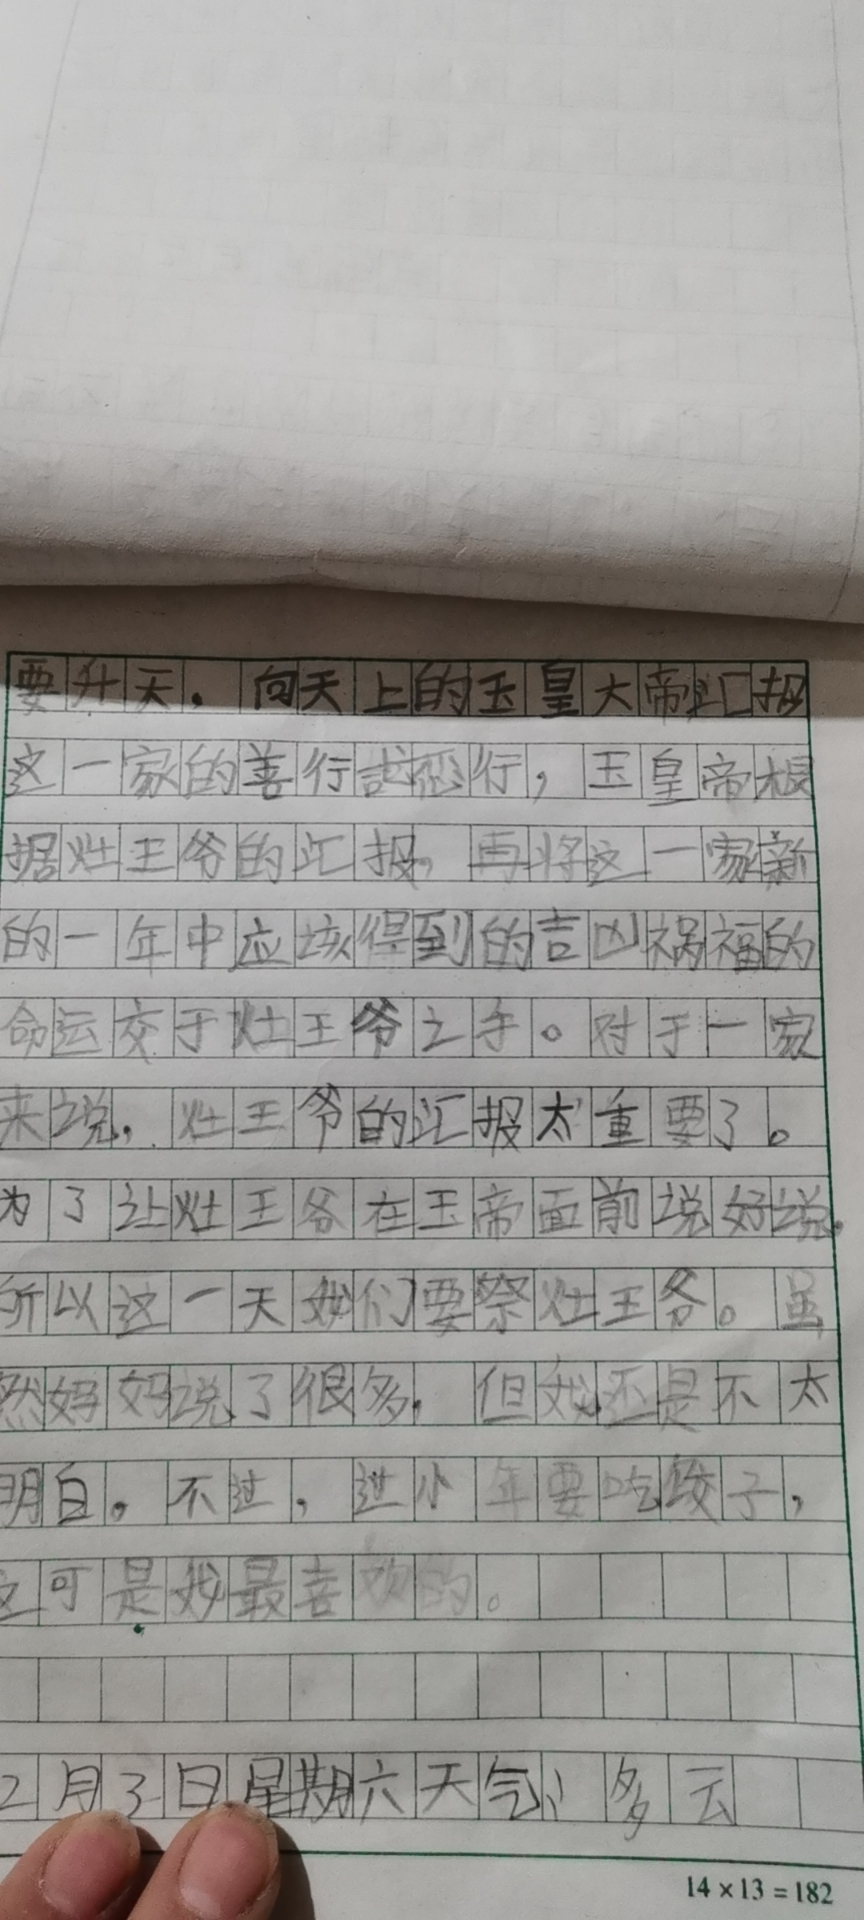 要升天，向天上的玉皇大帝汇报
这一家的善行或恶行，玉皇帝根
据灶王爷的汇报，再将这一家新
的一年中应该得到的吉凶祸福的
命运交于灶王爷之手。对于一家
来说，灶王爷的汇报太重要了。
为了让灶王爷在玉帝面前说好说。
所以这一天我们要祭灶王爷。虽
然妈妈说了很多，但我还是不太
明白。不过，过小年要吃饺子，
这可是我最喜欢的。
2月3日星期六天气：多云
14×13=182